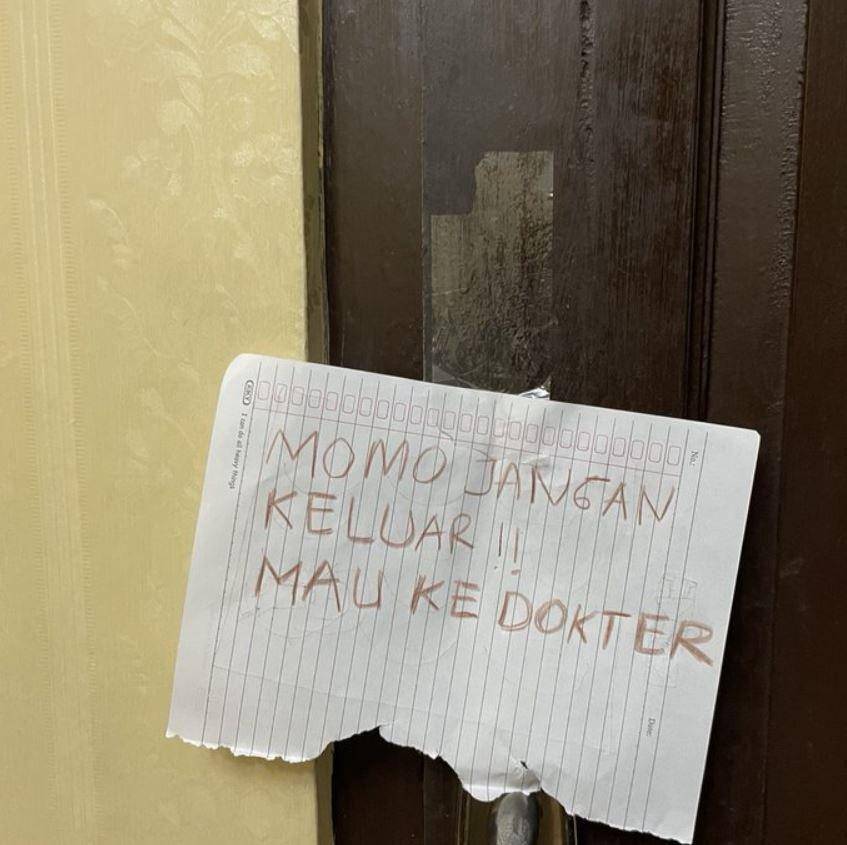 MOMO JANGAN
KELUAR !!
MAU KE DOKTER
No.:
Date:
I can do all heavy things